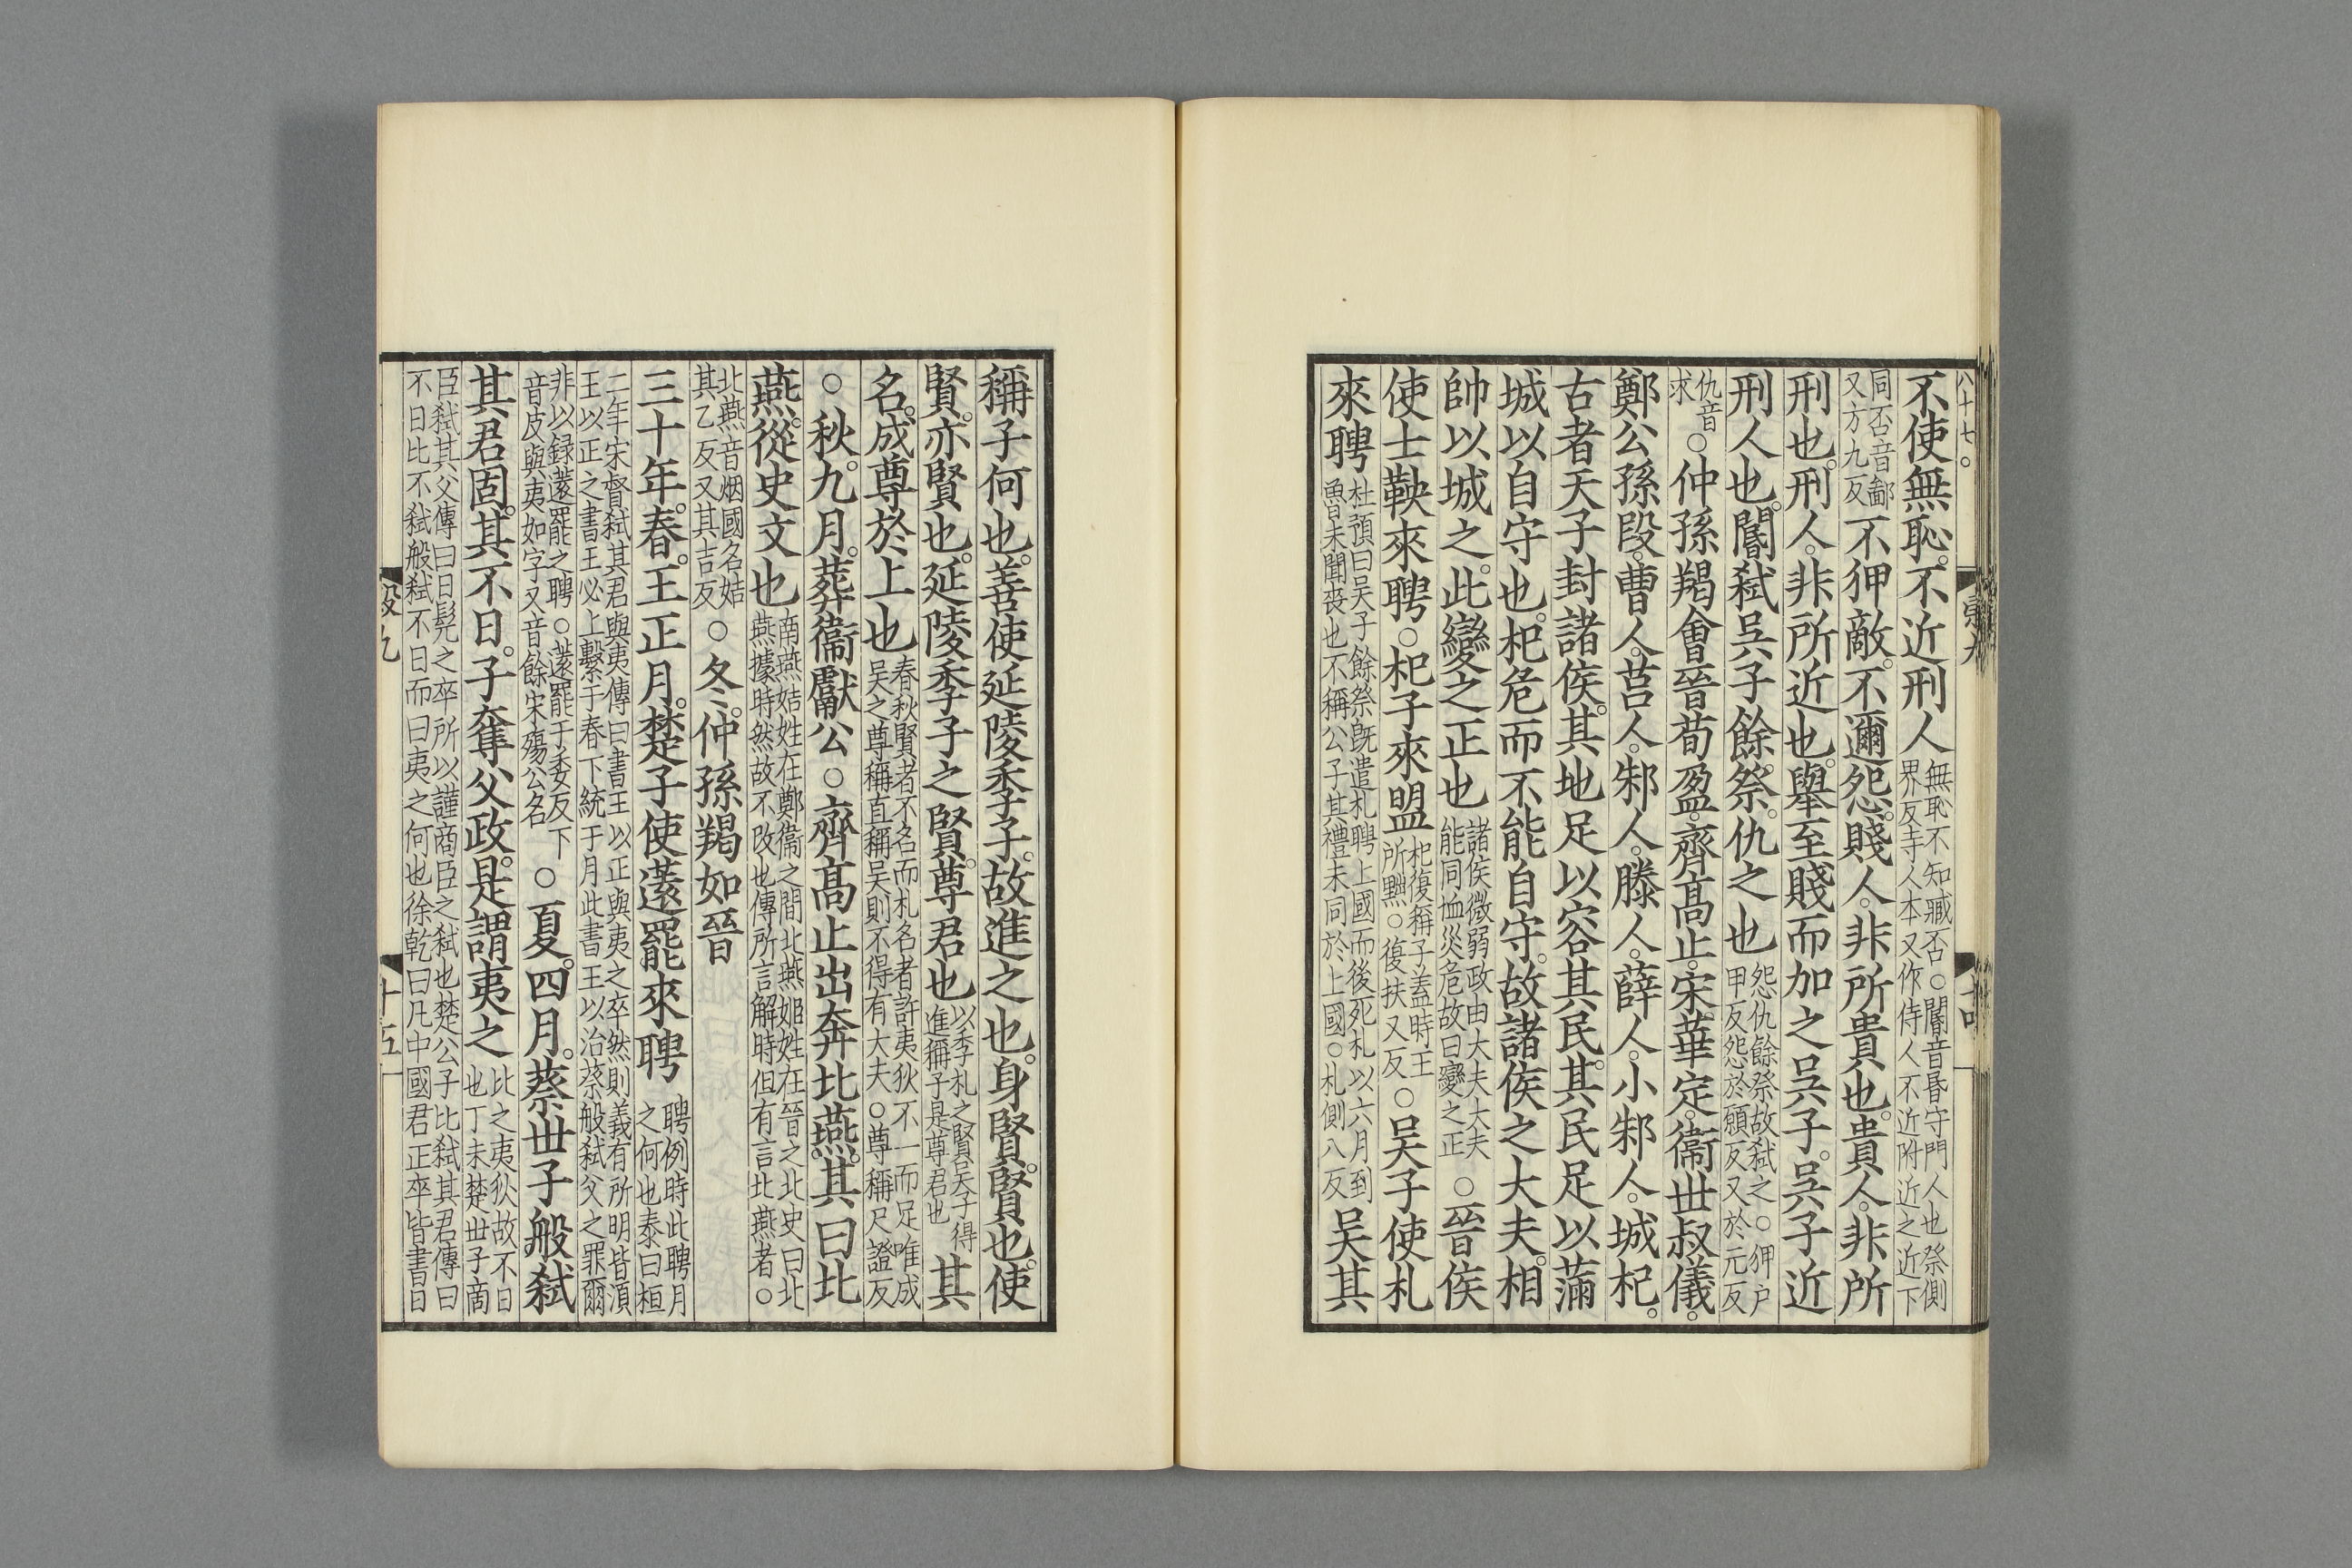 不使無恥。不近刑人無恥不知臧否○閽音昏守門人也祭側界反寺人本又作侍人不近附近之近下
同否音鄙又方九反不狎敵。不邇怨。賤人。非所貴也。貴人。非所
刑也。刑人。非所近也。舉至賤而加之吳子。吳子近
刑人也。閽弒吳子餘祭。仇之也怨仇餘祭故弒之○狎户甲反怨於願反又於元反
仇音求○仲孫羯會晉荀盈。齊高止。宋華定。衞世叔儀。
鄭公孫段。曹人。莒人。邾人。滕人。薛人。小邾人。城杞。
古者天子封諸侯。其地足以容其民。其民足以滿
城以自守也。杞危而不能自守。故諸侯之大夫。相
帥以城之。此變之正也諸侯微弱政由大夫大夫能同恤災危故曰變之正○晉侯
使士鞅來聘○杞子來盟杞復稱子蓋時王所黜○復扶又反○吳子使札
來聘杜預曰吳子餘祭既遣札聘上國而後死札以六月到魯未聞喪也不稱公子其禮未同於上國○札側八反吳其
稱子何也。善使延陵季子。故進之也。身賢。賢也。使
賢。亦賢也。延陵季子之賢。尊君也以季札之賢吳子得進稱子是尊君也其
名。成尊於上也春秋賢者不名而札名者許夷狄不一而足唯成吳之尊稱直稱吳則不得有大夫○尊稱尺證反
○秋。九月。葬衞獻公○齊高止出奔北燕。其曰北
燕。從史文也南燕姞姓在鄭衞之間北燕姬姓在晉之北史曰北燕據時然故不改也傳所言解時但有言北燕者○
北燕音烟國名姞其乙反又其吉反○冬。仲孫羯如晉
三十年。春。王正月。楚子使薳罷來聘聘例時此聘月之何也泰曰桓
二年宋督弒其君與夷傳曰書王以正與夷之卒然則義有所明皆須王以正之書王必上繫于春下統于月此書王以治蔡般弒父之罪爾
非以録薳罷之聘○薳罷于委反下音皮與夷如字又音餘宋殤公名○夏。四月。蔡世子般弒
其君固。其不日。子奪父政。是謂夷之比之夷狄故不日也丁未楚世子商
臣弒其父傳曰日髡之卒所以謹商臣之弒也楚公子比弒其君傳曰不日比不弒般弒不日而曰夷之何也徐乾曰凡中國君正卒皆書日
榖九
十五